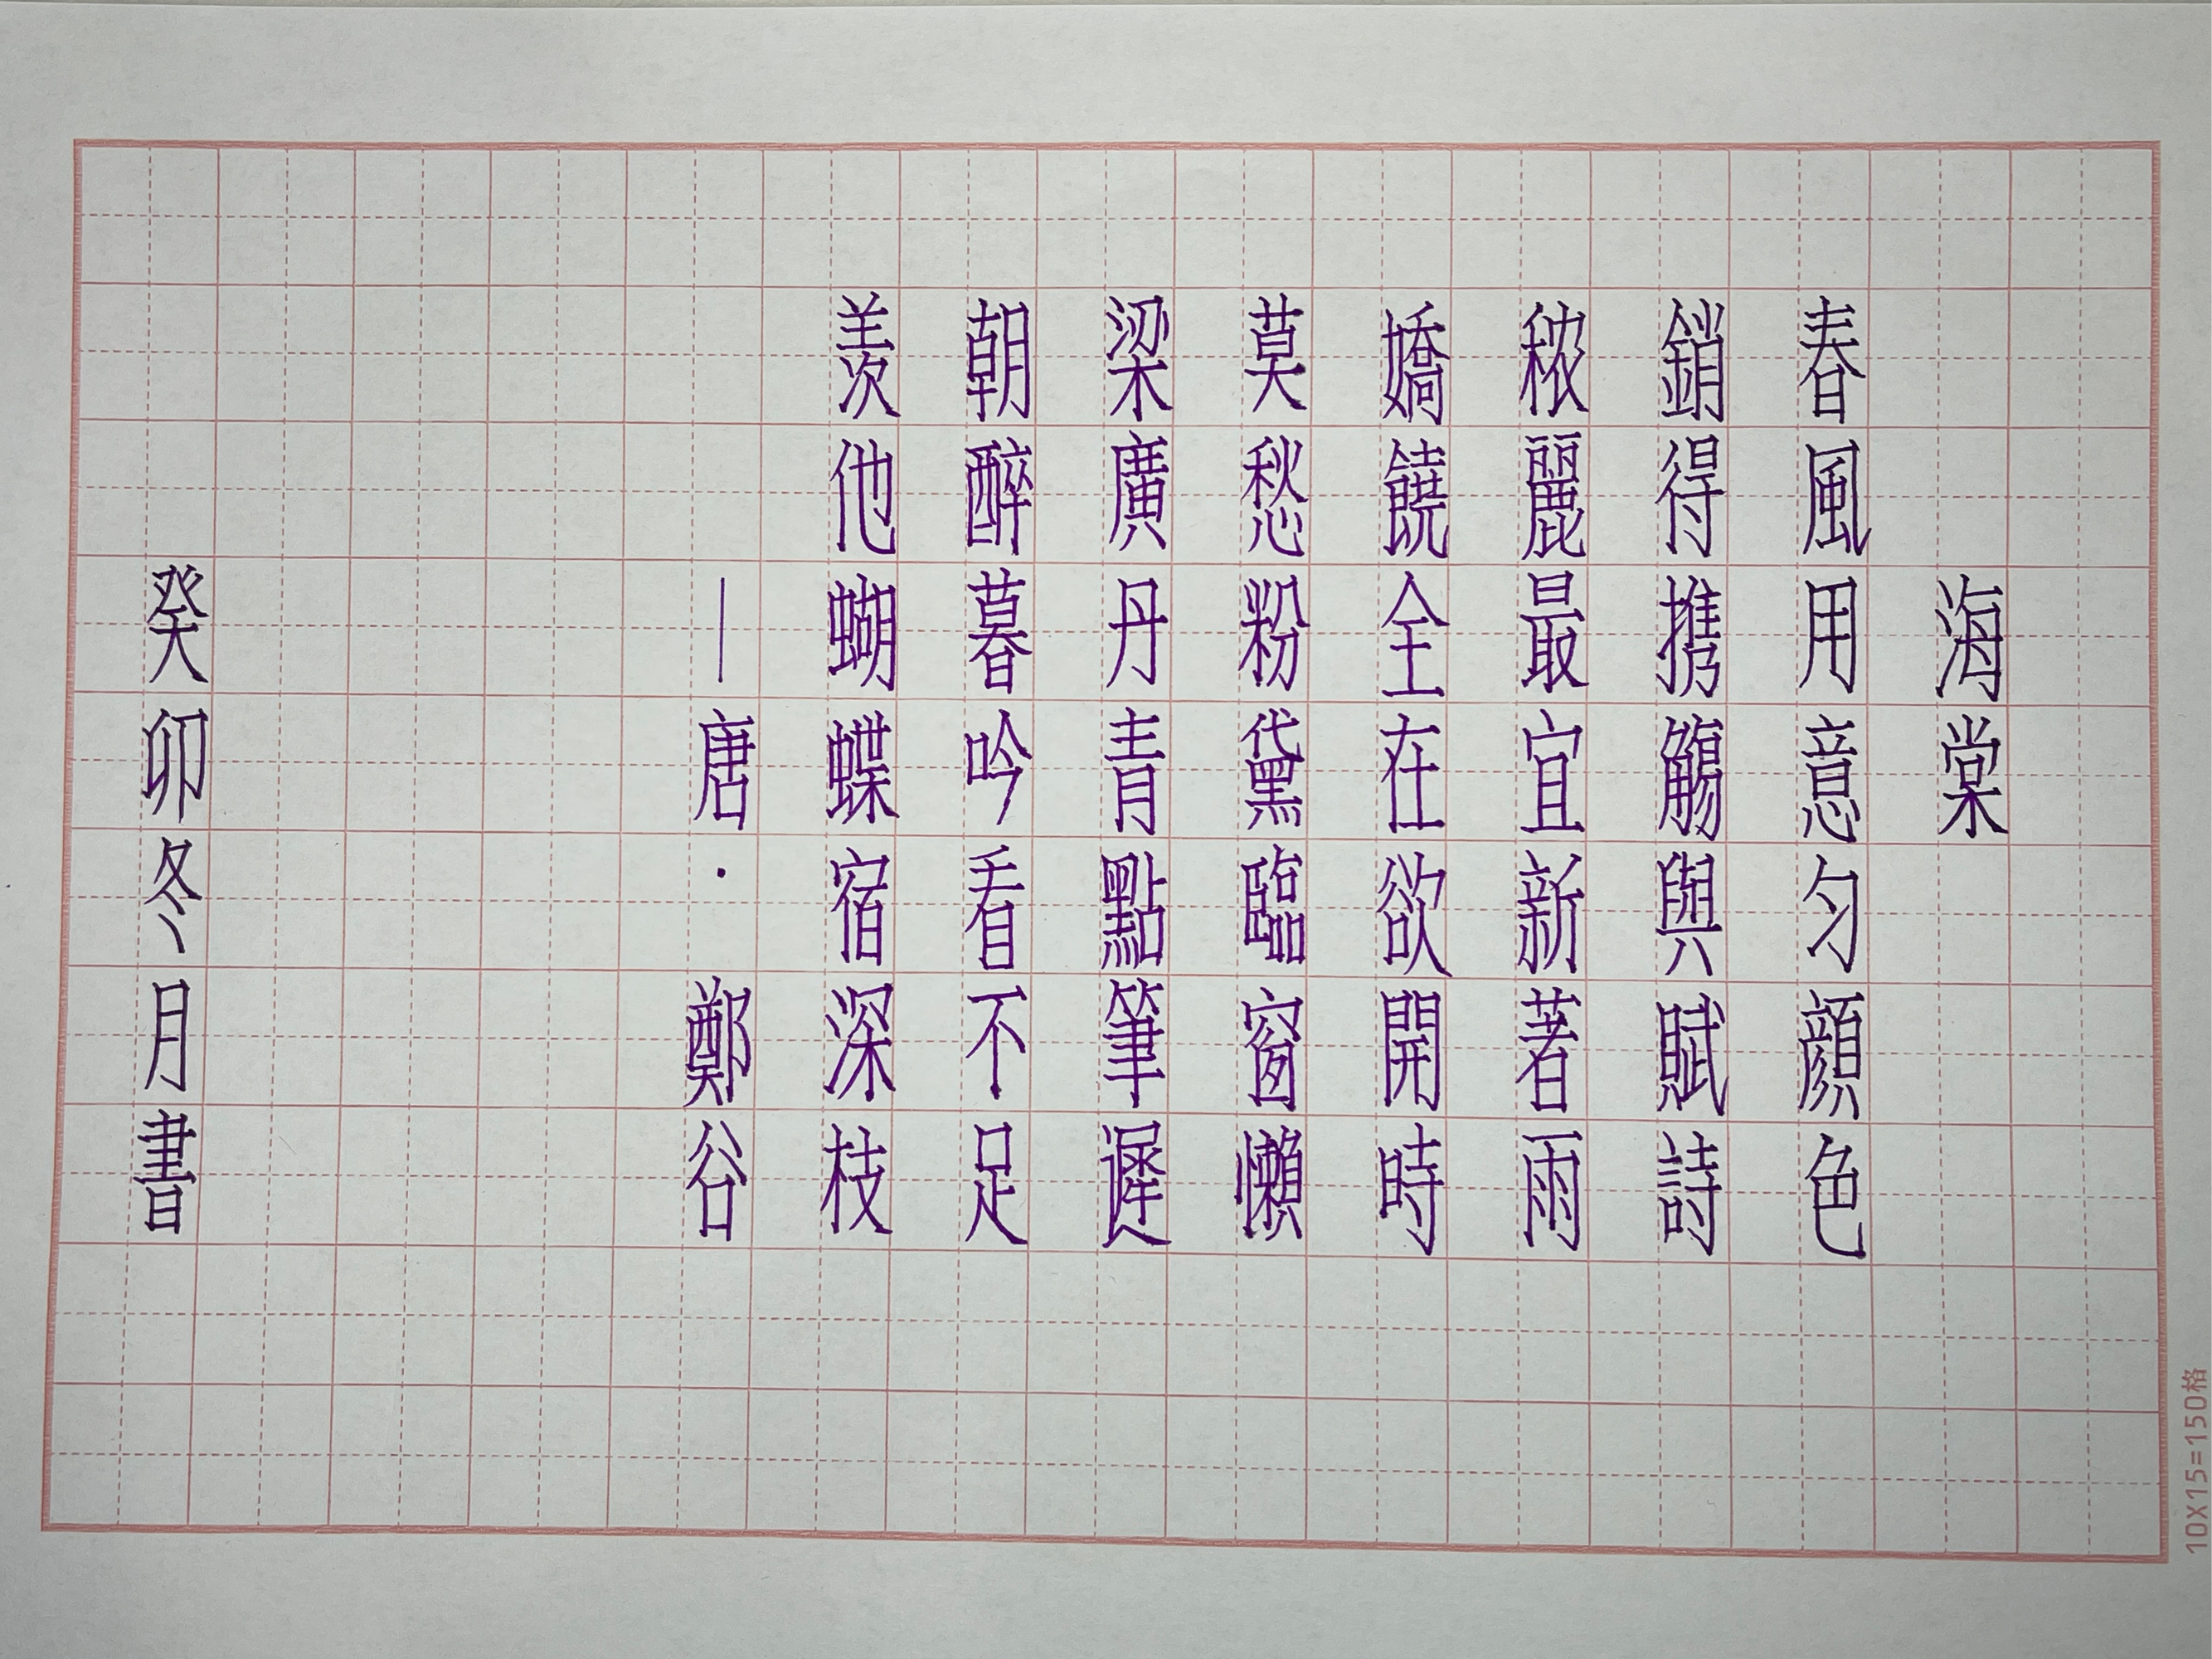 海棠
春風用意匀顔色
銷得携觴與賦詩
秾麗最宜新著雨
嬌饒全在欲開時
莫愁粉黛臨窗懶
梁廣丹青點筆遲
朝醉暮吟看不足
羨他蝴蝶宿深枝
—唐·鄭谷
癸卯冬月書
10X15=150格